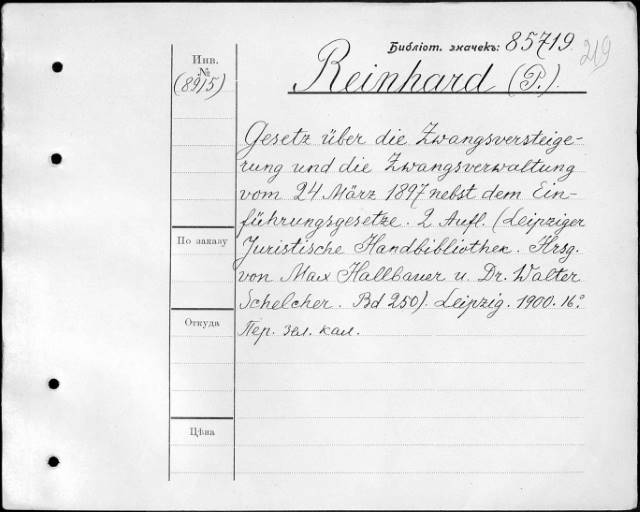 Библіот. значекъ: 85719.
219
Инв.
№
(8915)
Reinhard (P.).
Gesetz über die Zwangsversteige-
rung und die Zwangsverwaltung
vom 24 März 1897 nebst dem Ein-
führungsgesetze. 2 Aufl. (Leipziger
Juristische Handbibliothek. Hrsg.
von Max Hallbauer u. Dr. Walter
Schelcher. Bd 250). Leipzig. 1900. 16°
Пер. зел. кал.
По заказу
Откуда
Цѣна